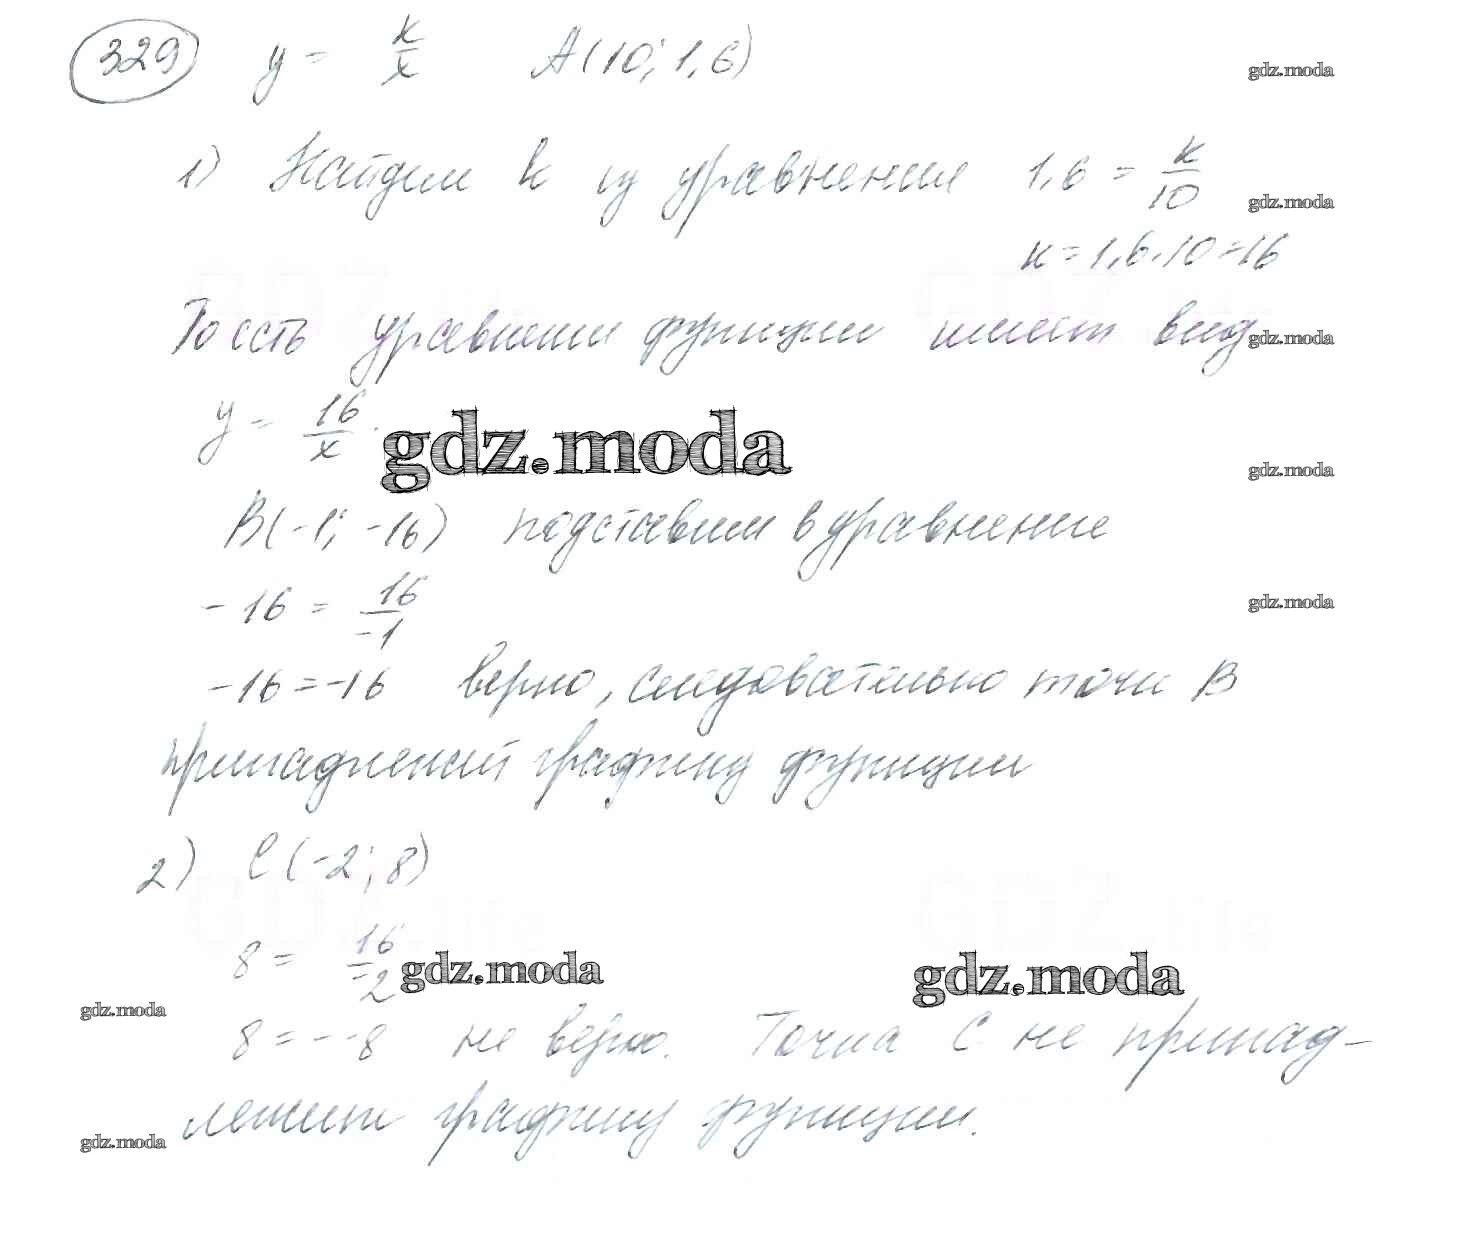 329 y = k/x A(10; 1,6)
gdz.moda
1) Найдем k из уравнения 1,6 = k/10
gdz.moda
k = 1,6 · 10 = 16
То есть уравнение функции имеет вид
gdz.moda
y = 16/x.
gdz.moda
gdz.moda
B(-1; -16) подставим в уравнение
-16 = 16/-1
gdz.moda
-16 = -16 верно, следовательно точка B
принадлежит графику функции
2) C(-2; 8)
GDZ.life
8 = 16/-2
gdz.moda
gdz.moda
gdz.moda
8 = --8 не верно. Точка C не принад-
лежит графику функции.
gdz.moda